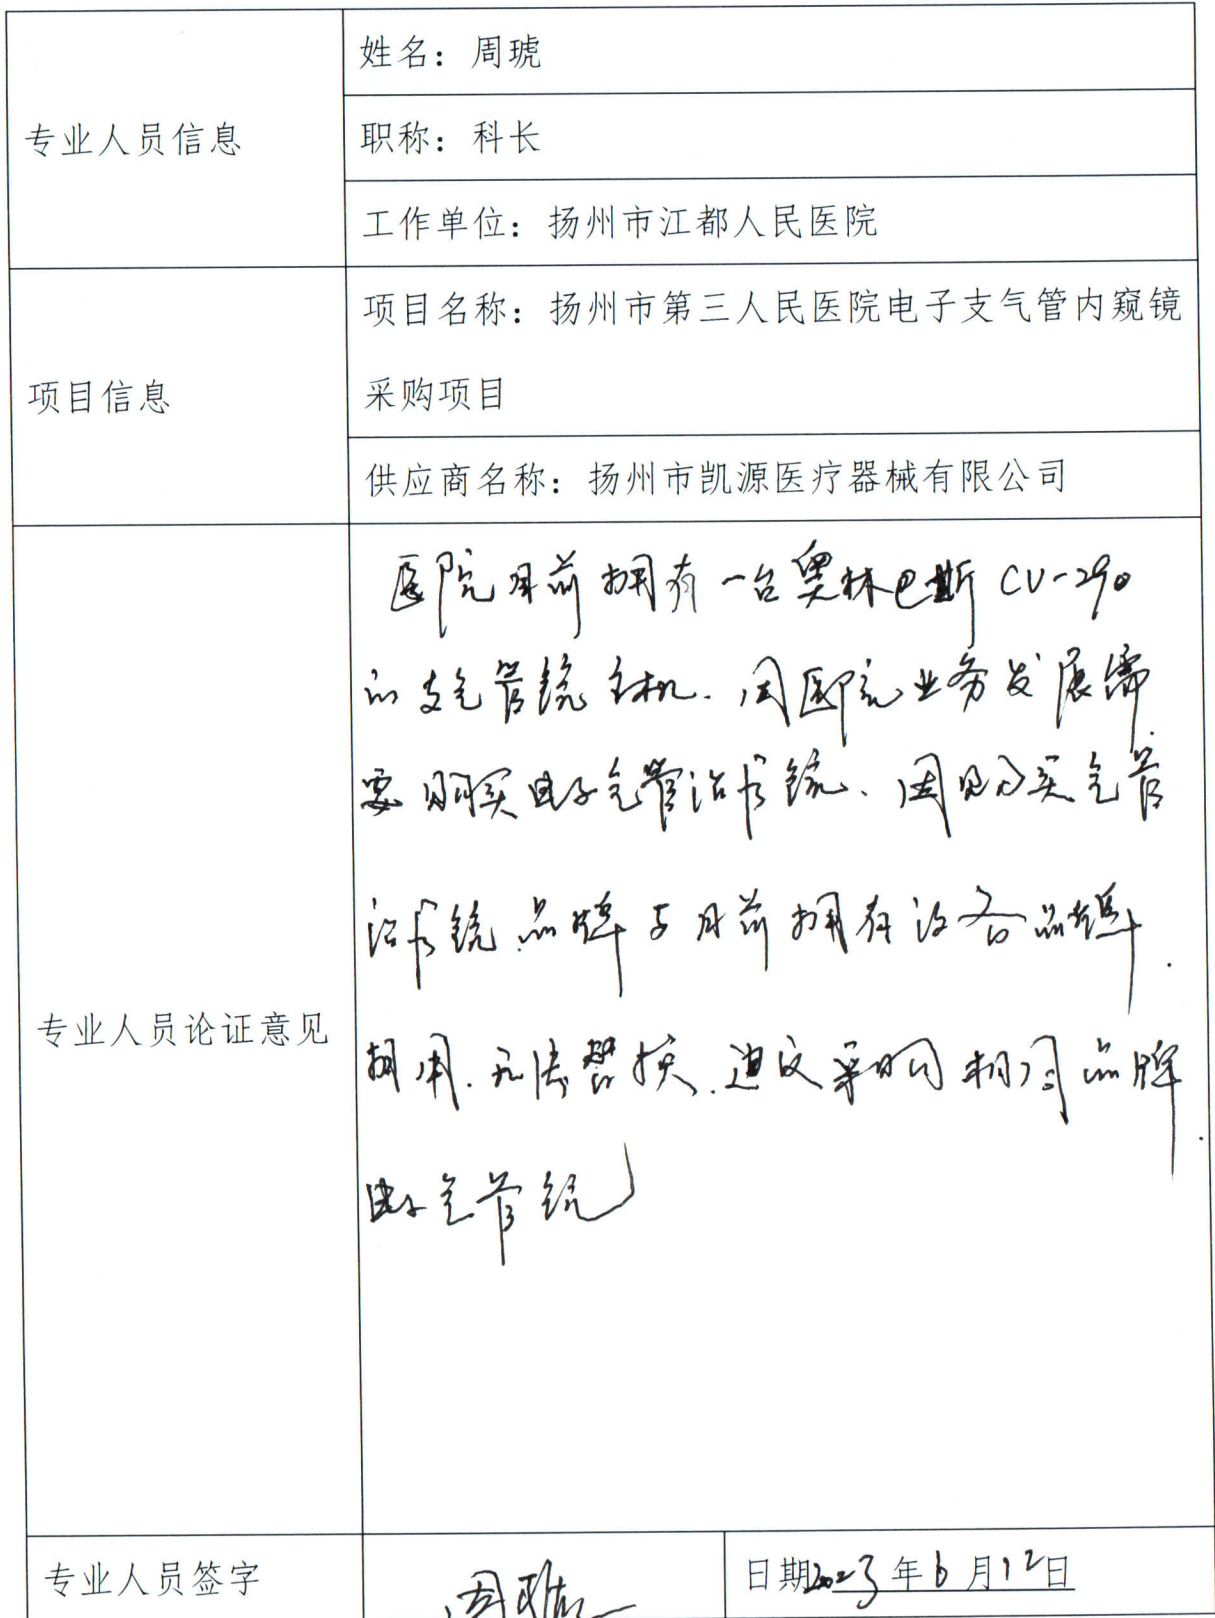 专业人员信息
姓名：周琥
职称：科长
工作单位：扬州市江都人民医院
项目信息
项目名称：扬州市第三人民医院电子支气管内窥镜
采购项目
供应商名称：扬州市凯源医疗器械有限公司
专业人员论证意见
医院目前拥有一台奥林巴斯CV-290
的支气管镜主机．因医院业务发展需
要购买电子气管治疗镜．因购买气管
治疗镜品牌与目前拥有设备品牌．
无法替换．建议采购相同品牌．
电子气管镜
专业人员签字
周琥
日期2023年6月12日